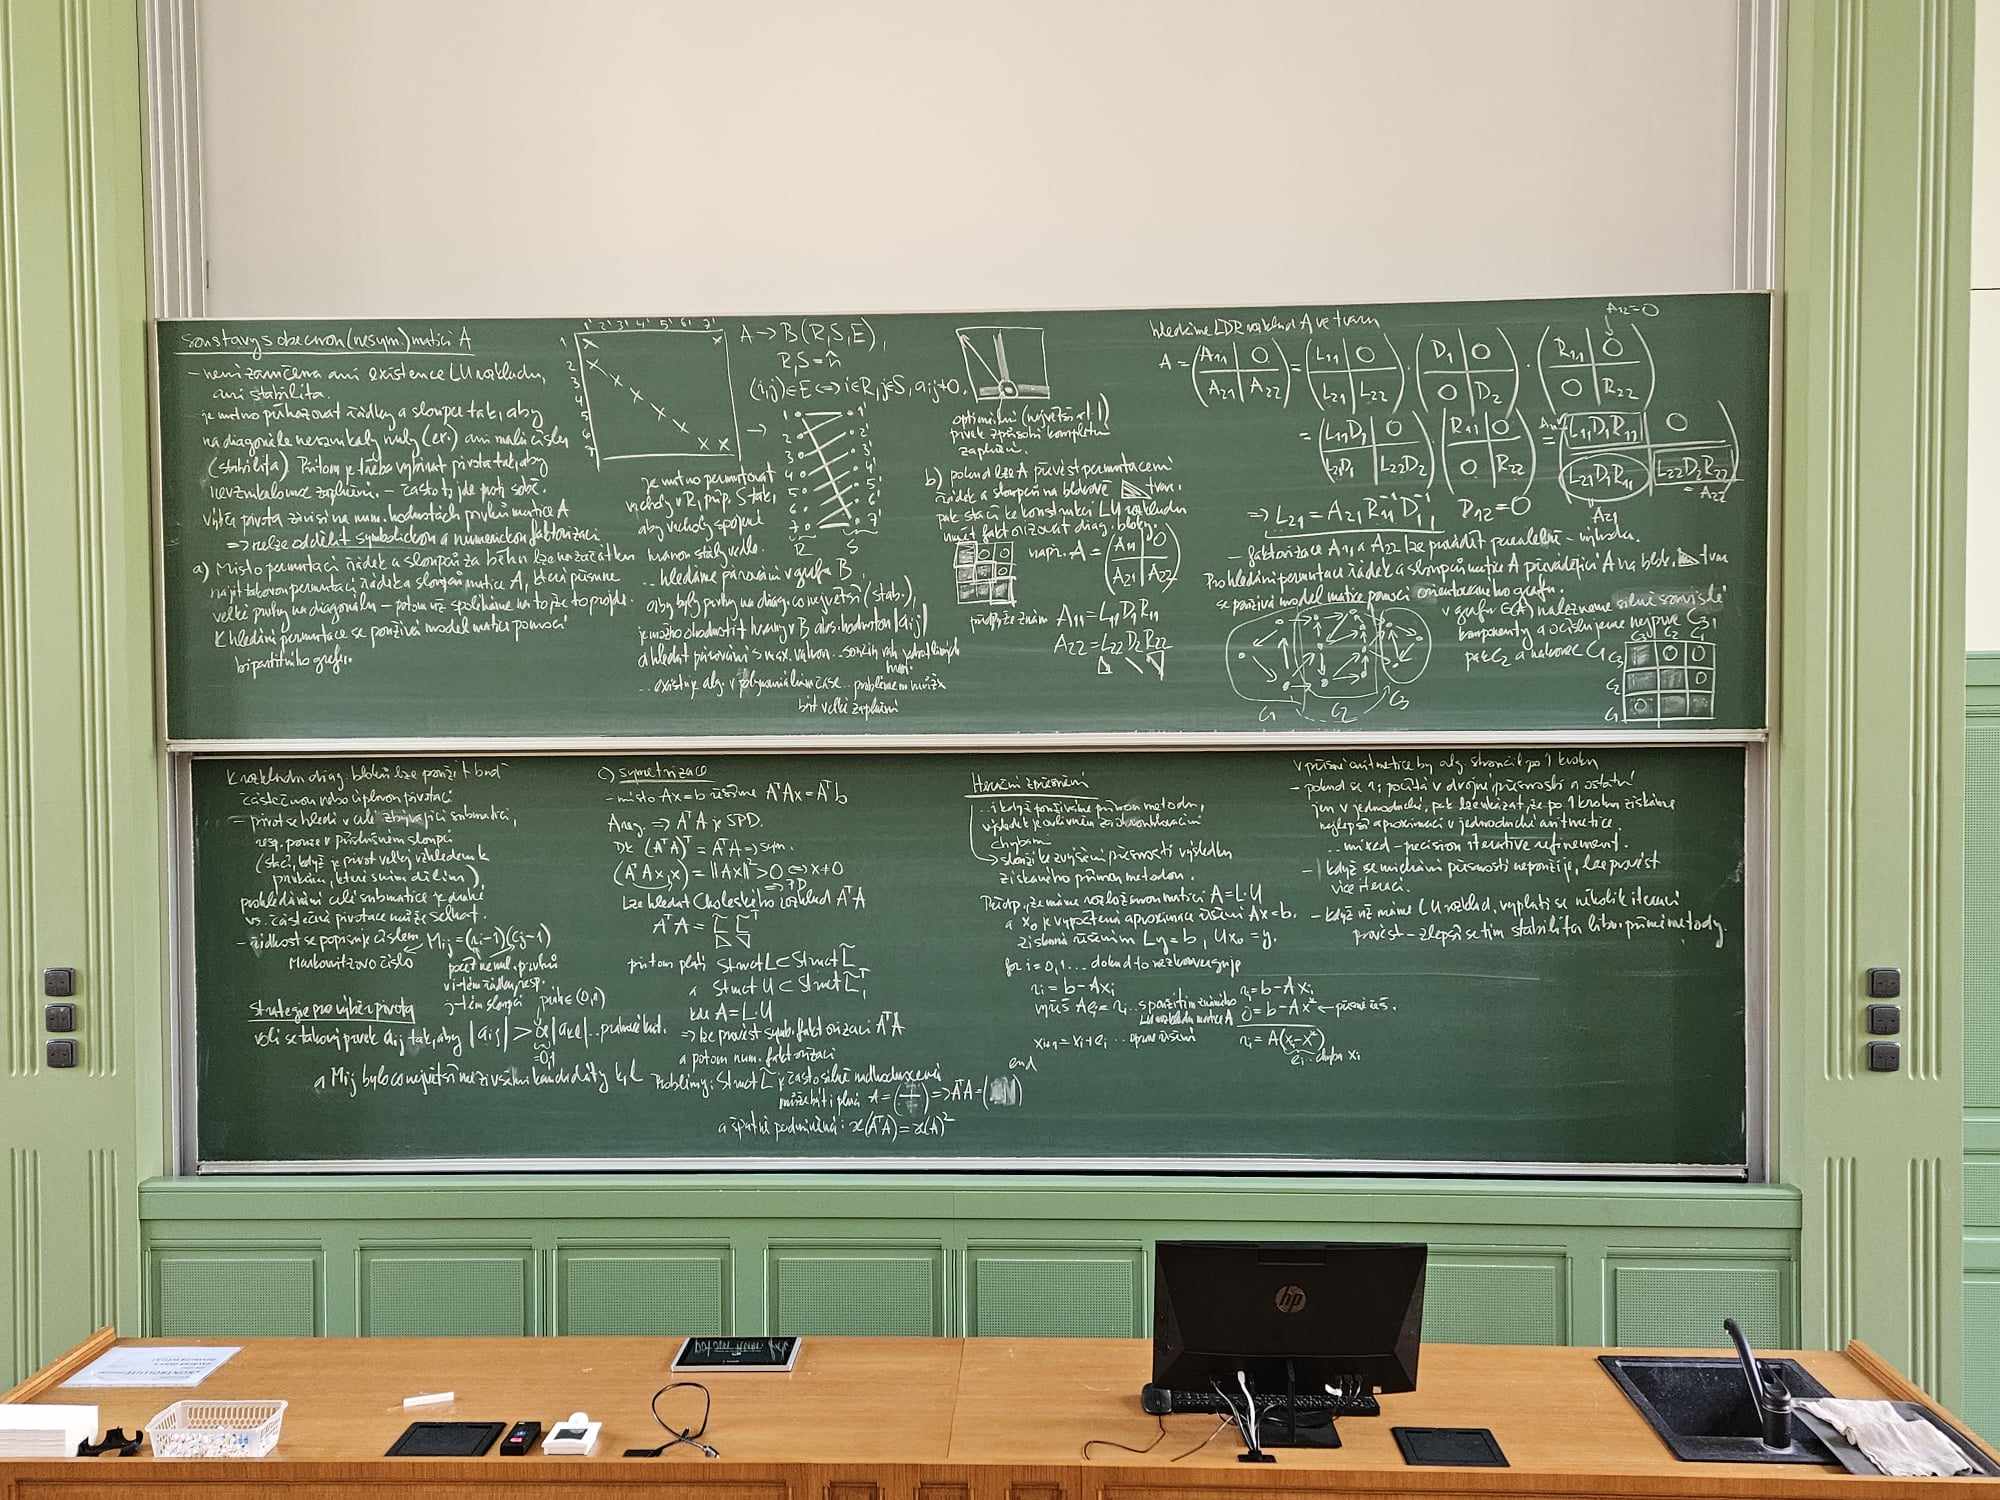 Soustavy s obecnou (nesym.) maticí A
- není zaručena ani existence LU rozkladu,
ani stabilita.
je nutno přehazovat řádky a sloupce tak, aby
na diagonále nevznikaly nuly (ex.) ani malá čísla
(stabilita) Přitom je třeba vybírat pivota tak, aby
nevznikalo moc zaplnění. - často to jde proti sobě.
výběr pivota závisí na num. hodnotách prvků matice A
=> nelze oddělit symbolickou a numerickou faktorizaci
a) Místo permutací řádek a sloupců za běhu lze na začátku
najít takovou permutaci řádek a sloupců matice A, která přesune
velké prvky na diagonálu - potom už spoléháme na to, že to projde.
K hledání permutace se používá model matice pomocí
bipartitního grafu.
1' 2' 3' 4' 5' 6' 7'
1
2
3
4
5
6
7
A → B(R,S,E),
R,S = n̂
(i,j)∈E <=> i∈R, j∈S, aij≠0.
1 1'
2 2'
3 3'
4 4'
5 5'
6 6'
7 7'
R S
je nutno permutovat
vrcholy v R, příp. S tak,
aby vrcholy spojené
hranou stály vedle.
.. hledáme párování v grafu B
Aby byly prvky na diag. co největší (stab.),
je možno ohodnotit hrany v B abs. hodnotou |aij|
a hledat párování s max. vahou... součin vah jednotlivých
hran.
...existuje alg. v polynomiálním čase... problémem může
být velké zaplnění
optimální (největší v |.|)
prvek způsobí kompletní
zaplnění.
b) pokud lze A převést permutacemi
řádek a sloupců na blokově tvar,
pak stačí ke konstrukci LU rozkladu
umět faktorizovat diag. bloky.
např. A = (A11 0
A21 A22)
předp., že znám A11 = L11 D1 R11
A22 = L22 D2 R22
hledáme LDR rozklad A ve tvaru
A12=0
A = (A11 0 = (L11 0 · (D1 0 · (R11 0
A21 A22) L21 L22) 0 D2) 0 R22)
= (L11D1 0 (R11 0 = (L11D1R11 0
L21D1 L22D2) 0 R22) L21D1R11 L22D2R22)
A11
A21
= A22
=> L21 = A21 R11⁻¹ D1⁻¹, D12 = 0
- faktorizace A11 a A22 lze provádět paralelně - výhoda.
Pro hledání permutace řádek a sloupců matice A převádějící A na blok. tvar
se používá model matice pomocí orientovaného grafu.
v grafu G(A) nalezneme silně souvislé
komponenty a očíslujeme nejprve C3,
pak C2 a nakonec C1
C3 C2 C1
C3
C2
C1
C1 C2 C3
K rozkladu diag. bloků lze použít buď
částečnou nebo úplnou pivotaci
- pivot se hledá v celé zbývající submatici,
resp. pouze v příslušném sloupci
(stačí, když je pivot velký vzhledem k
prvkům, které s ním dělím)
prohledávání celé submatice je drahé
vs. částečná pivotace může selhat.
- řídkost se popisuje číslem Mij = (ri-1)(cj-1)
Markowitzovo číslo
počet nenul. prvků
v i-tém řádku, resp.
j-tém sloupci
Strategie pro výběr pivota
volí se takový prvek aij tak, aby |aij| > α|akl|.. pro
=0,1
a Mij bylo co nejmenší mezi všemi kandidáty k,l
c) symetrizace
- místo Ax=b řešíme AᵀAx = Aᵀb
A reg. => AᵀA je SPD.
Dk (AᵀA)ᵀ = AᵀA => sym.
(AᵀAx,x) = ||Ax||² > 0 <=> x≠0
=> PD
lze hledat Choleského rozklad AᵀA
AᵀA = L̃ L̃ᵀ
přitom platí Struct L ⊂ Struct L̃
a Struct U ⊂ Struct L̃ᵀ,
kde A = L·U
=> lze provést symb. faktorizaci AᵀA
a potom num. faktorizaci
Problémy: Struct L̃ je často silně nadhodnocená
může být i plná A = ( ) => AᵀA = ( )
a špatná podmíněnost: ϰ(AᵀA) = ϰ(A)²
Iterační zpřesnění
... i když používáme přímou metodu,
výsledek je ovlivněn zaokrouhlovacími
chybami
→ slouží ke zvýšení přesnosti výsledku
získaného přímou metodou.
Předp., že máme rozloženou matici A = L·U
a x0 je vypočtená aproximace řešení Ax=b.
získaná řešením Ly=b, Ux0=y.
for i=0,1... dokud to nezkonverguje
ri = b - Axi
vyřeš Aei = ri .. s použitím známého
LU rozkladu matice A
xi+1 = xi + ei ... oprav řešení
end
ri = b - Axi
0 = b - Ax* ← přesné řeš.
ri = A(xi - x*)
ei .. chyba xi
V přesné aritmetice by alg. skončil po 1 kroku
- pokud se ri počítá v dvojné přesnosti a ostatní
jen v jednoduché, pak lze ukázat, že po 1 kroku získáme
nejlepší aproximaci v jednoduché aritmetice.
.. mixed-precision iterative refinement.
- i když se míchání přesností nepoužije, lze provést
více iterací.
- když už máme LU rozklad, vyplatí se několik iterací
provést - zlepší se tím stabilita libov. přímé metody.
hp